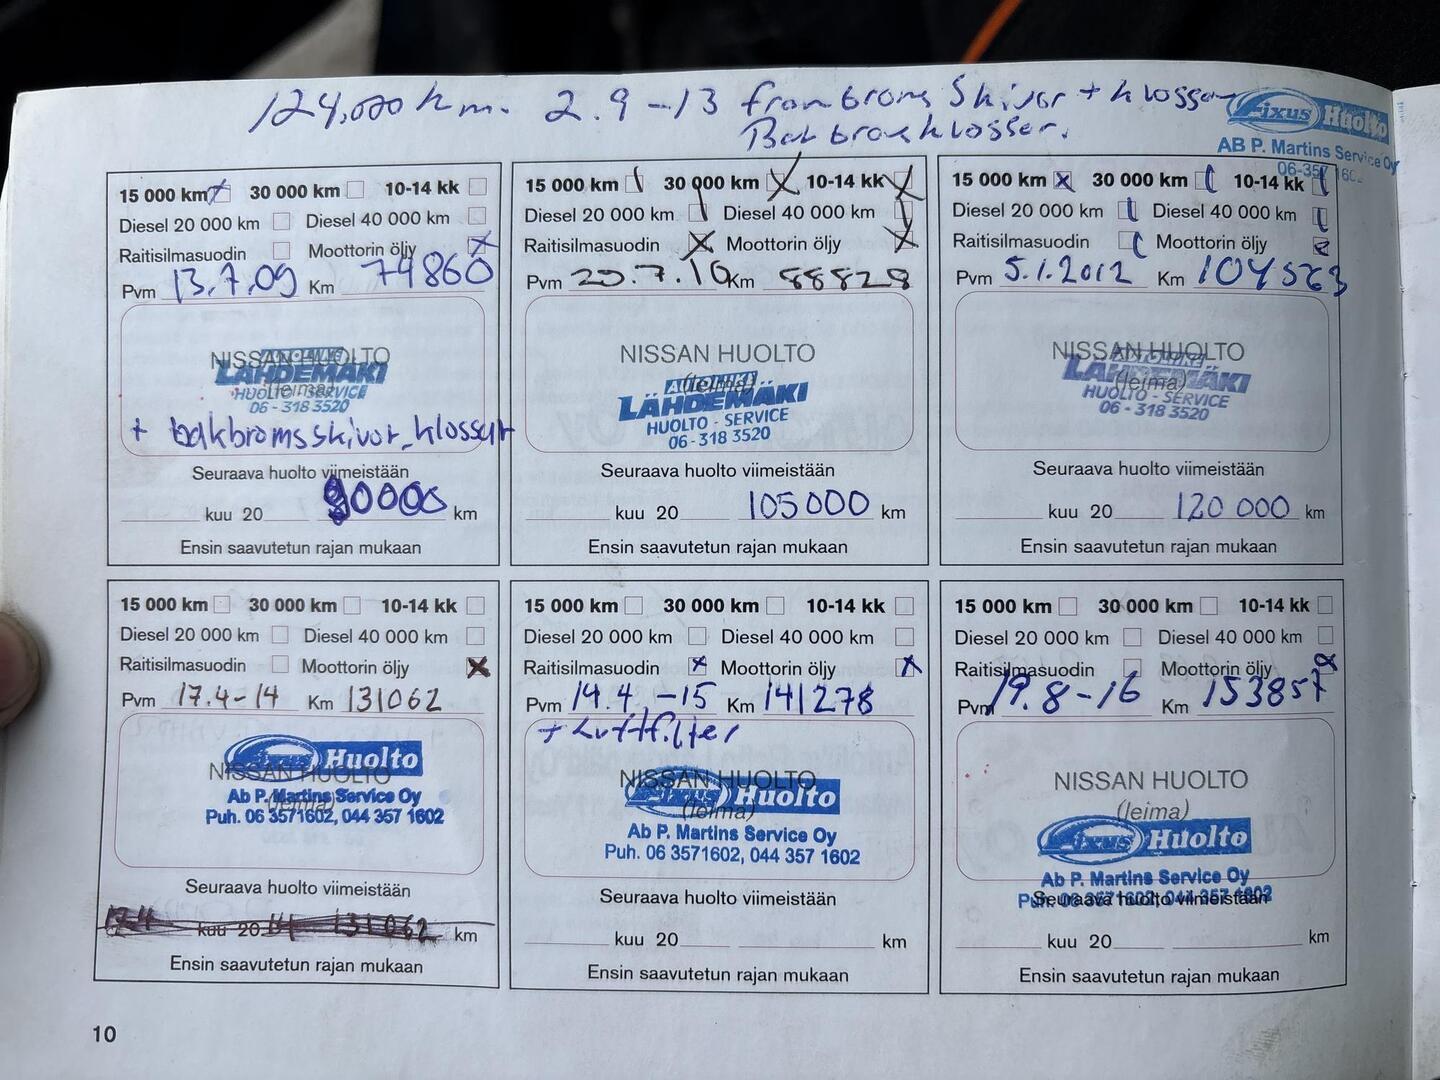 124,000 km. 2.9-13 frambroms Skivor + klossar
Bakbromsklossar.
Fixus Huolto
AB P. Martins Service Oy
15 000 km 30 000 km 10-14 kk
Diesel 20 000 km Diesel 40 000 km
Raitisilmasuodin Moottorin öljy
Pvm 13.7.09 Km 74860
NISSAN HUOLTO
(leima)
LÄHDEMÄKI
HUOLTO - SERVICE
06 - 318 3520
+ bakbromsskivor, klossar
Seuraava huolto viimeistään
kuu 20 90000 km
Ensin saavutetun rajan mukaan
15 000 km 30 000 km 10-14 kk
Diesel 20 000 km Diesel 40 000 km
Raitisilmasuodin Moottorin öljy
Pvm 20.7.10 Km 88828
NISSAN HUOLTO
(leima)
LÄHDEMÄKI
HUOLTO - SERVICE
06 - 318 3520
Seuraava huolto viimeistään
kuu 20 105000 km
Ensin saavutetun rajan mukaan
15 000 km 30 000 km 10-14 kk
Diesel 20 000 km Diesel 40 000 km
Raitisilmasuodin Moottorin öljy
Pvm 5.1.2012 Km 104563
NISSAN HUOLTO
(leima)
LÄHDEMÄKI
HUOLTO - SERVICE
06 - 318 3520
Seuraava huolto viimeistään
kuu 20 120 000 km
Ensin saavutetun rajan mukaan
15 000 km 30 000 km 10-14 kk
Diesel 20 000 km Diesel 40 000 km
Raitisilmasuodin Moottorin öljy
Pvm 17.4-14 Km 131062
Fixus Huolto
NISSAN HUOLTO
(leima)
Ab P. Martins Service Oy
Puh. 06 3571602, 044 357 1602
Seuraava huolto viimeistään
17.4 kuu 20 14 131062 km
Ensin saavutetun rajan mukaan
15 000 km 30 000 km 10-14 kk
Diesel 20 000 km Diesel 40 000 km
Raitisilmasuodin Moottorin öljy
Pvm 14.4.-15 Km 141278
+ Luftfilter
NISSAN HUOLTO
Fixus Huolto
(leima)
Ab P. Martins Service Oy
Puh. 06 3571602, 044 357 1602
Seuraava huolto viimeistään
kuu 20 km
Ensin saavutetun rajan mukaan
15 000 km 30 000 km 10-14 kk
Diesel 20 000 km Diesel 40 000 km
Raitisilmasuodin Moottorin öljy
Pvm 19.8-16 Km 153857
NISSAN HUOLTO
(leima)
Fixus Huolto
Ab P. Martins Service Oy
Puh. 06 3571602, 044 357 1602
Seuraava huolto viimeistään
kuu 20 km
Ensin saavutetun rajan mukaan
10